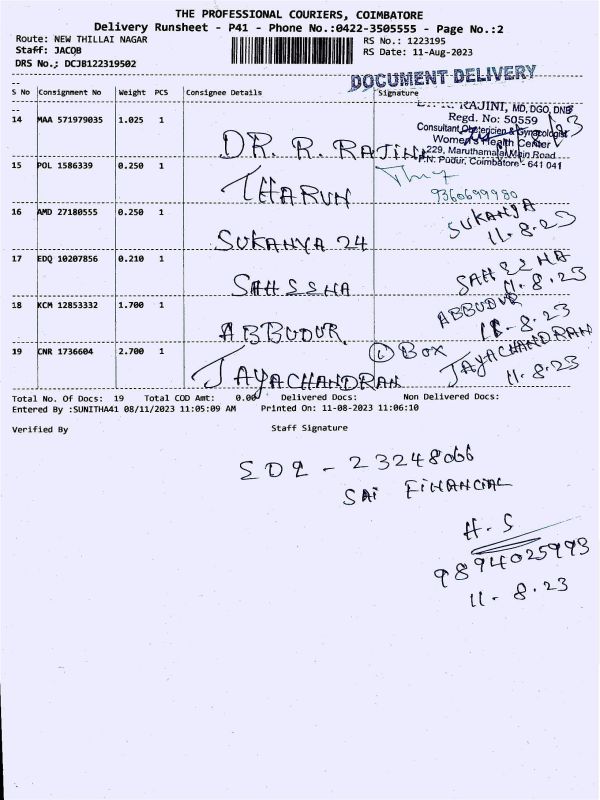 THE PROFESSIONAL COURIERS, COIMBATORE
Delivery Runsheet - P41 - Phone No.:0422-3505555 - Page No.:2
Route: NEW THILLAI NAGAR RS No.: 1223195
Staff: JACQB RS Date: 11-Aug-2023
DRS No.; DCJB122319502
DOCUMENT DELIVERY
S No Consignment No Weight PCS Consignee Details Signature
RAJINI, MD, DGO, DNB
14 MAA 571979035 1.025 1 Regd. No: 50559
Consultant Obstetrician & Gynacologist
Women's Health Center
DR. R. RAJINI 229, Maruthamalai Main Road
P.N. Pudur, Coimbatore - 641 041
15 POL 1586339 0.250 1
THARUN 9360699980
16 AMD 27180555 0.250 1 SUKANYA
11.8.23
SUKANYA 24
17 EDQ 10207856 0.210 1 SAHSSHA
11.8.23
SAHSSHA
18 KCM 12853332 1.700 1 ABBUDUR
11-8.23
ABBUDUR.
19 CNR 1736604 2.700 1 Box JAYACHANDRAN
11.8.23
JAYACHANDRAN
Total No. Of Docs: 19 Total COD Amt: 0.00 Delivered Docs: Non Delivered Docs:
Entered By :SUNITHA41 08/11/2023 11:05:09 AM Printed On: 11-08-2023 11:06:10
Verified By Staff Signature
EDQ - 23248066
SAI FINANCIAL
H.S
9894025993
11.8.23